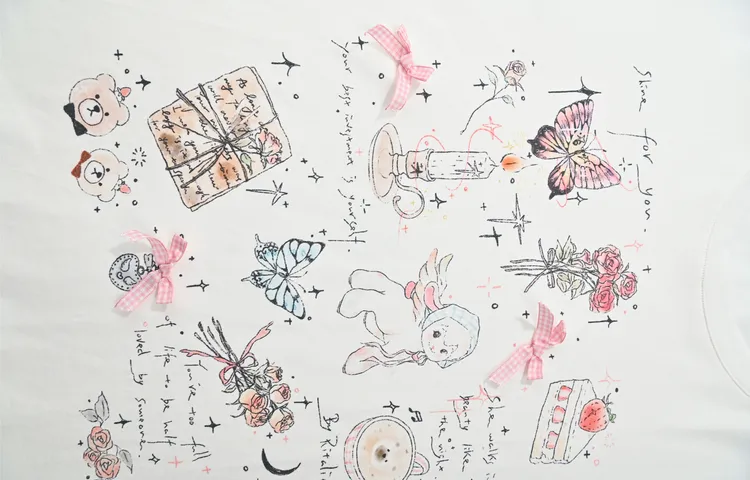 Shine for you.
Your best investment is yourself.
She walks in
beauty like
the night
By Ritali
You're too full
of life to be half
loved by someone.